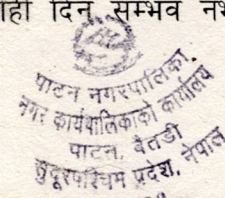 ही दिन सम्भव नभ
पाटन नगरपालिका
नगर कार्यपालिकाको कार्यालय
पाटन, बैतडी
सुदूरपश्चिम प्रदेश, नेपाल